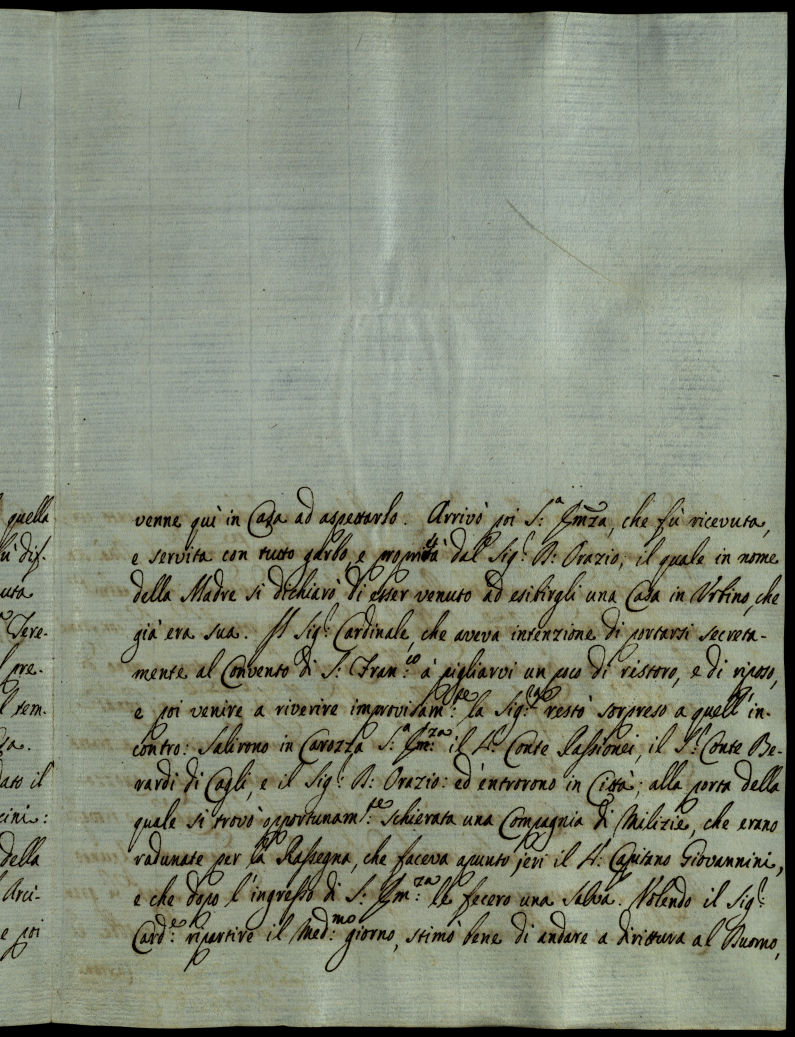 quella
ù dis-
uta
Tere-
pre-
l tem-
za.
ato il
cini:
della
Arci-
e poi
venne quì in Casa ad aspettarlo. Arrivò poi S:ª Em̃za, che fù ricevuta,
e servita con tutto garbo, e proprietà dal Sig:r B: Orazio, il quale in nome
della Madre si dichiarò di esser venuto ad esibirgli una Casa in Urbino, che
già era sua. Il Sig:r Cardinale, che aveva intenzione di portarsi secreta-
mente al Convento di S: Fran:co à pigliarvi un poco di ristoro, e di riposo,
e poi venire a riverire improvisam:te la Sig:ra restò sorpreso a quell' in-
contro: Salirono in Carozza S:ª Em:za il S:r Conte Passionei, il S:r Conte Be-
rardi di Cagli, e il Sig:r B: Orazio: ed entrorono in Città; alla porta della
quale si trovò opportunam:te schierata una Compagnia di Milizie, che erano
radunate per la Rassegna, che faceva apunto jeri il S:r Capitano Giovannini,
e che dopo l'ingresso di S: Em:za le fecero una Salva. Volendo il Sig:r
Card:e ripartire il Med:mo giorno, stimò bene di andare a dirittura al Duomo,